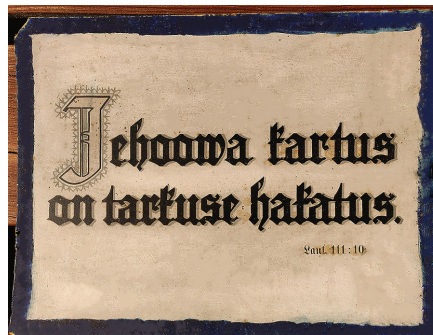 Jehoowa kartus
on tarkuse hakatus.
Laul. 111:10